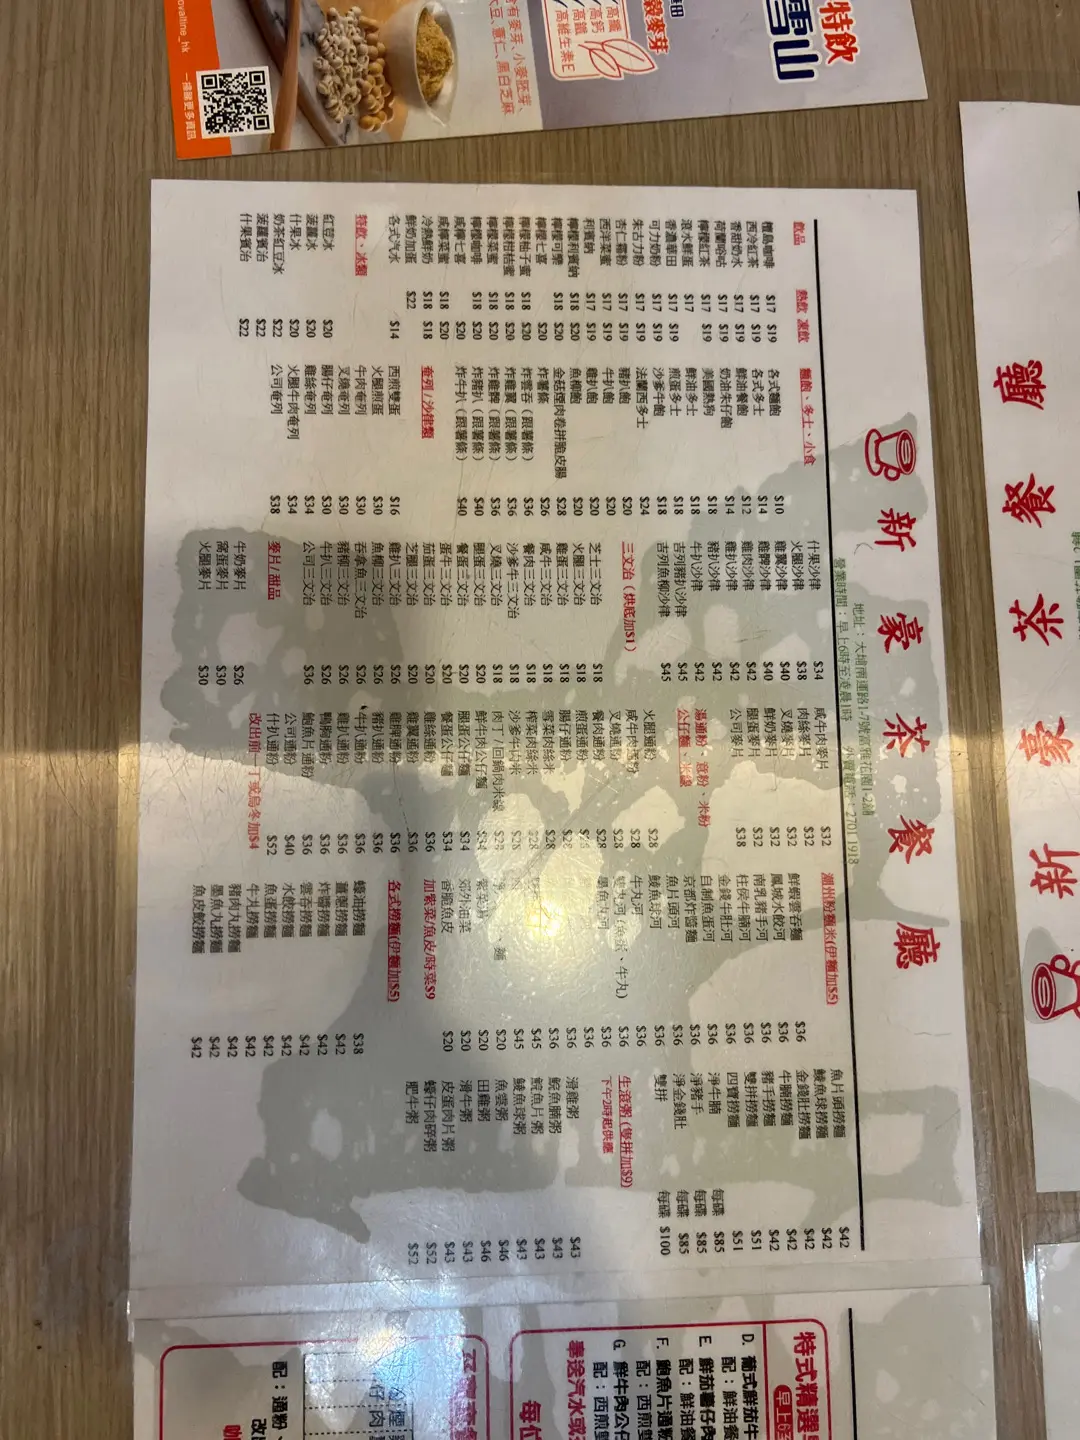 新豪茶餐廳
地址：大埔南運路1-7號富雅花園1-2舖 外賣電話：2701 1918
營業時間：早上6時至凌晨1時
飲品 熱飲 凍飲
檀島咖啡 $17 $19
西冷紅茶 $17 $19
香甜奶水 $17 $19
荷蘭哈咕 $17 $19
檸檬紅茶 $17 $19
滾水雙蛋 $17
香濃華田 $17 $19
可力奶粉 $17 $19
朱古力粉 $17 $19
杏仁霜粉 $17 $19
西洋菜蜜 $17 $19
利賓納 $17 $19
檸檬利賓納 $18 $20
檸檬可樂 $18 $20
檸檬七喜 $20
檸檬柚子蜜 $18 $20
檸檬柑桔蜜 $18 $20
檸檬菜蜜 $18 $20
檸檬咖啡 $18 $20
咸檸七喜 $20
咸檸菜蜜 $18 $20
冷熱鮮奶 $18 $18
鮮奶加蛋 $22
各式汽水 $14
特飲、冰類
紅豆冰 $20
菠蘿冰 $20
什果冰 $20
奶茶紅豆冰 $22
菠蘿賓治 $22
什果賓治 $22
麵飽、多士、小食
各式麵飽 $10
各式多士 $14
鮮油餐飽 $12
奶油朱仔飽 $14
美國熱狗 $18
鮮油多士 $18
煎蛋多士 $18
沙爹牛飽 $18
法蘭西多士 $24
豬扒飽 $20
牛扒飽 $20
雞扒飽 $20
魚柳飽 $20
金菇煙肉卷拼脆皮腸 $28
炸薯條 $26
炸雲吞（跟薯條） $36
炸雞翼（跟薯條） $36
炸雞髀（跟薯條） $36
炸豬扒（跟薯條） $40
炸牛扒（跟薯條） $40
奄列/沙律類
西煎雙蛋 $16
火腿煎蛋 $30
牛肉奄列 $30
叉燒奄列 $30
腸仔奄列 $30
雞絲奄列 $34
火腿牛肉奄列 $34
公司奄列 $38
什果沙律 $34
火腿沙律 $38
雞翼沙律 $40
雞髀沙律 $40
雞肉沙律 $42
雞扒沙律 $42
豬扒沙律 $42
牛扒沙律 $42
吉列豬扒沙律 $45
吉列魚柳沙律 $45
三文治（烘底加$1）
芝士三文治 $18
火腿三文治 $18
雞蛋三文治 $18
咸牛三文治 $18
餐肉三文治 $18
沙爹牛三文治 $18
叉燒三文治 $18
腿蛋三文治 $20
餐蛋三文治 $20
蛋牛三文治 $20
茄蛋三文治 $20
芝腿三文治 $20
雞扒三文治 $26
魚柳三文治 $26
吞拿魚三文治 $26
豬柳三文治 $26
牛扒三文治 $26
公司三文治 $36
麥片/甜品
牛奶麥片 $26
窩蛋麥片 $30
火腿麥片 $30
咸牛肉麥片 $32
肉絲麥片 $32
叉燒麥片 $32
鮮奶麥片 $32
腿蛋麥片 $32
公司麥片 $38
湯通粉、意粉、米粉
公仔麵、米線
火腿通粉 $28
咸牛肉通粉 $28
叉燒通粉 $28
餐肉通粉 $28
煎蛋通粉
腸仔通粉 $28
雪菜肉絲米 $28
榨菜肉絲米 $28
沙爹牛肉米 $28
肉丁/回鍋肉米線 $28
鮮牛肉公仔麵 $34
腿蛋公仔麵 $34
餐蛋公仔麵 $34
雞絲通粉 $36
雞翼通粉 $36
雞髀通粉 $36
豬扒通粉 $36
牛扒通粉 $36
雞扒通粉 $36
鴨胸通粉 $36
鮑魚片通粉 $36
公司通粉 $40
什扒通粉 $52
改出前一丁或烏冬加$4
潮州粉麵米(伊麵加$5)
鮮蝦雲吞麵 $36
鳳城水餃河 $36
南乳豬手河 $36
柱侯牛腩河 $36
金錢牛肚河 $36
自制魚蛋河 $36
京都炸醬麵 $36
魚片頭河 $36
鯪魚球河 $36
牛丸河 $36
雙丸河(魚蛋、牛丸) $36
墨魚丸河 $36
$36
$36
$36
$45
$45
紫菜 $20
郊外油菜 $20
香脆魚皮 $20
加紫菜/魚皮/時菜$9
各式撈麵(伊麵加$5)
蠔油撈麵 $38
薑蔥撈麵 $42
炸醬撈麵 $42
雲吞撈麵 $42
水餃撈麵 $42
魚蛋撈麵 $42
牛丸撈麵 $42
豬肉丸撈麵 $42
墨魚丸撈麵 $42
魚皮餃撈麵 $42
魚片頭撈麵 $42
鯪魚球撈麵 $42
金錢肚撈麵 $42
牛腩撈麵 $42
豬手撈麵 $42
雙拼撈麵 $51
四寶撈麵 $51
淨牛腩 每碟 $85
淨豬手 每碟 $85
淨金錢肚 每碟 $85
雙拼 每碟 $100
生滾粥 (雙拼加$9)
下午2時起供應
滑雞粥 $43
鯇魚腩粥 $43
鯇魚片粥 $43
鯪魚球粥 $43
魚雲粥 $46
田雞粥 $46
滑牛粥 $43
皮蛋肉片粥 $43
蠔仔肉碎粥 $52
肥牛粥 $52
新豪茶餐廳
特飲
雪山
穀麥芽
高纖
高鈣
高鐵
高維生素E
含有麥芽、小麥胚芽、
大豆、薏仁、黑白芝麻
ovaltine_hk
一掃睇更多資訊
特式精選
D. 葡式鮮茄牛
配：鮮油餐
E. 鮮茄薯仔肉
配：鮮油餐
F. 鮑魚片通粉
配：西煎雙
G. 鮮牛肉公仔
配：西煎雙
奉送汽水或
每位
配：通粉、